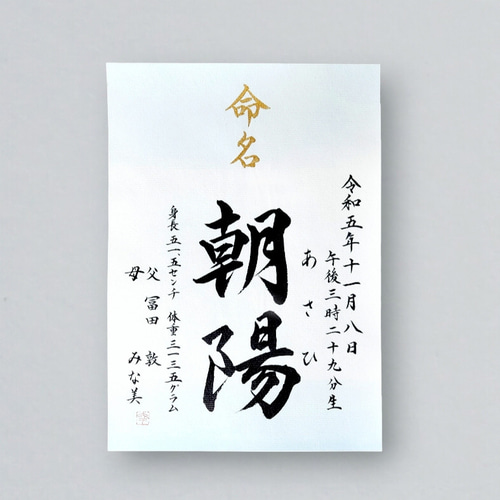 命名
令和五年十一月八日
午後三時二十九分生
あさひ
朝陽
身長五一・五センチ 体重三一三五グラム
父 冨田 敦
母 みな美